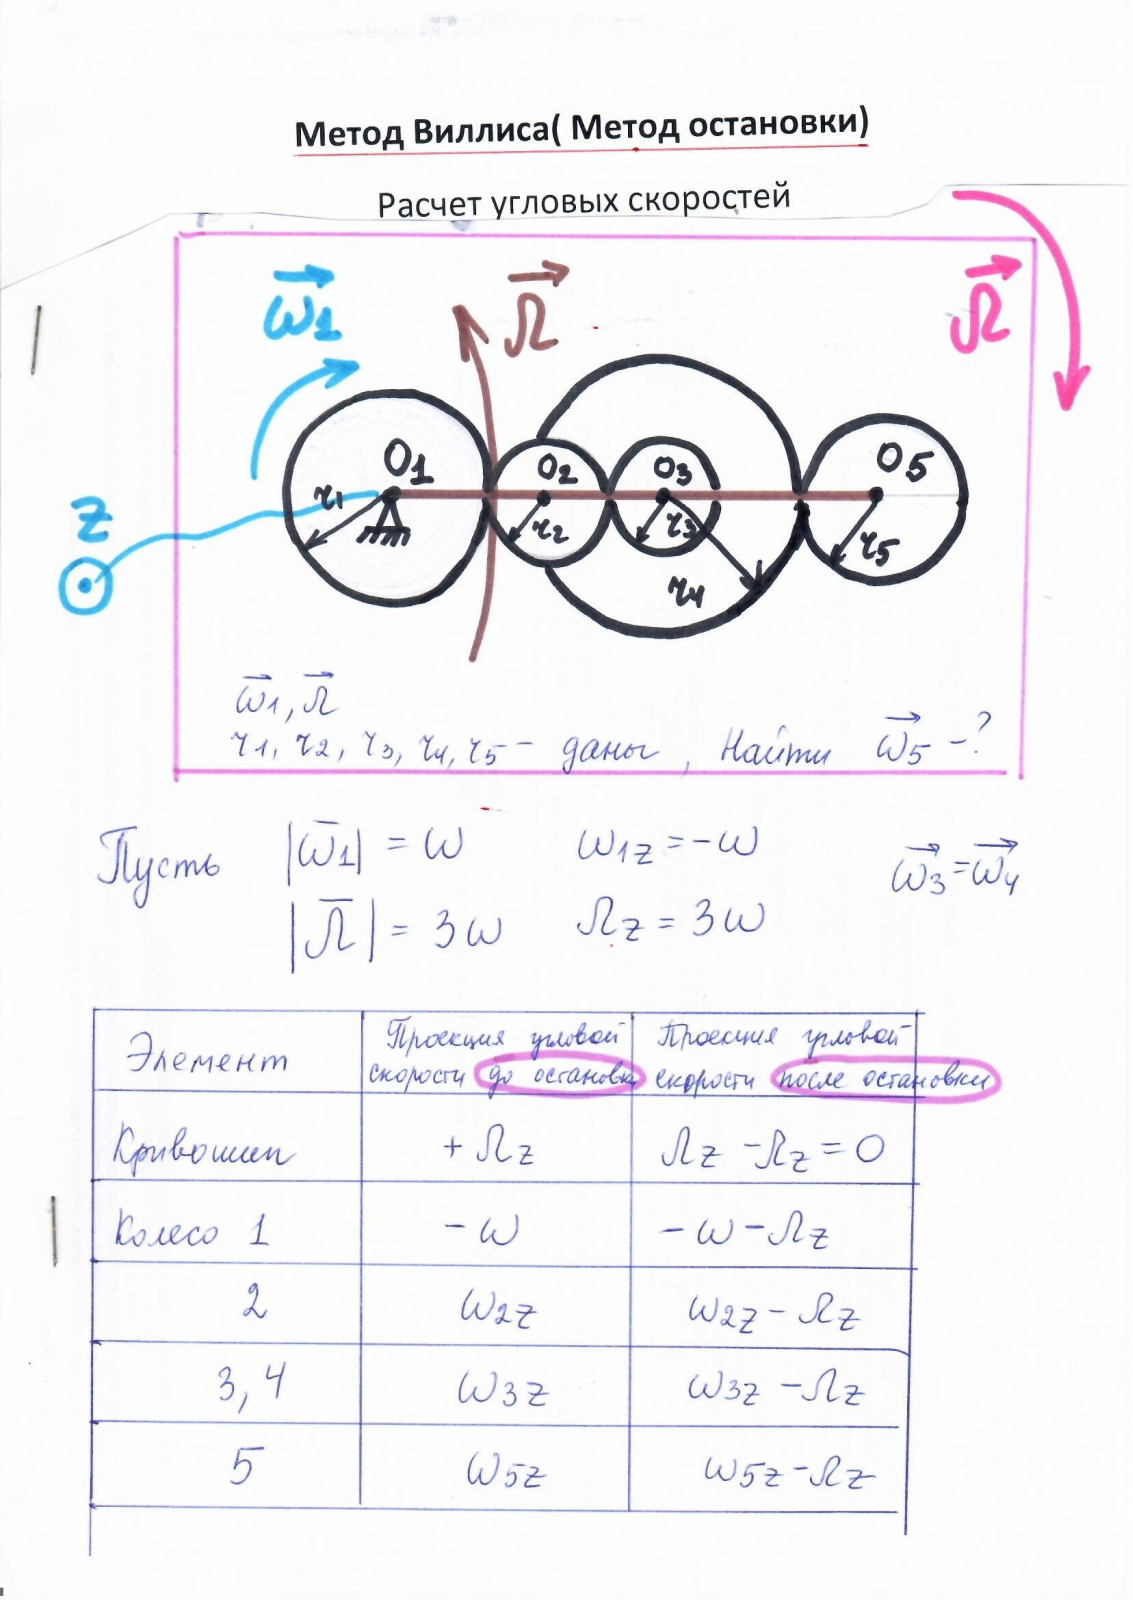 Метод Виллиса( Метод остановки)
Расчет угловых скоростей
ω1
Ω
Ω
Z
O1 O2 O3 O5
r1 r2 r3 r4 r5
ω1, Ω
r1, r2, r3, r4, r5 – даны, Найти ω5 –?
Пусть |ω1| = ω ω1z = -ω ω3 = ω4
|Ω| = 3ω Ωz = 3ω
Элемент Проекция угловой скорости до остановки Проекция угловой скорости после остановки
Кривошип + Ωz Ωz - Ωz = 0
Колесо 1 - ω - ω - Ωz
2 ω2z ω2z - Ωz
3, 4 ω3z ω3z - Ωz
5 ω5z ω5z - Ωz